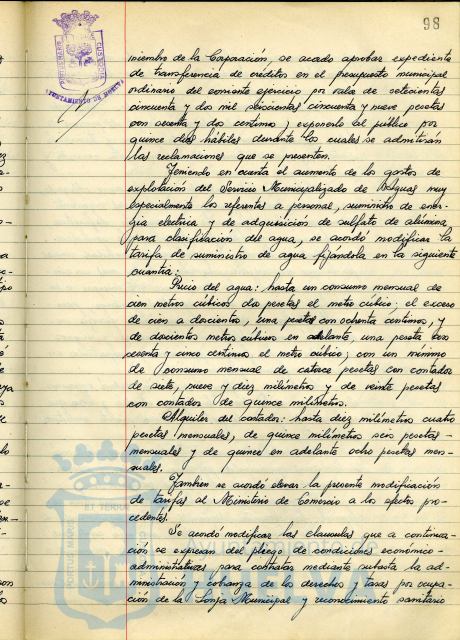 98
miembro de la Corporación, se acado aprobar expediente
de transferencia de créditos en el presupuesto municipal
ordinario del corriente ejercicio por valor de setecientas
cincuenta y dos mil seiscientas cincuenta y nueve pesetas
con sesenta y dos centimos y exponerlo al público por
quince dias hábiles durante los cuales se admitirán
las reclamaciones que se presenten.
Teniendo en cuenta el aumento de los gastos de
explotación del Servicio Municipalizado de Aguas muy
especialmente los referentes a personal, suministro de ener-
gia electrica y de adquisición de sulfato de alúmina,
para clasificación del agua, se acordó modificar la
tarifa de suministro de agua fijandola en la siguiente
cuantia:
Precio del agua: hasta un consumo mensual de
cien metros cúbicos dos pesetas el metro cúbico; el exceso
de cien a doscientos, una peseta con ochenta centimos, y
de doscientos metros cúbicos en adelante, una peseta con
setenta y cinco centimos el metro cúbico; con un minimo
de consumo mensual de catorce pesetas con contador
de siete, nueve y diez milímetros y de veinte pesetas
con contador de quince milímetros.
Alquiler del contador: hasta diez milímetros cuatro
pesetas mensuales, de quince milímetros seis pesetas
mensuales y de quince en adelante ocho pesetas men-
suales.
Tambien se acordó elevar la presente modificación
de tarifas al Ministerio de Comercio a los efectos pro-
cedentes.
Se acordó modificar las clausulas que a continua-
ción se expresan del pliego de condiciones economico-
administrativas para contratar mediante subasta la ad-
ministración y cobranza de los derechos y tasas por ocupa-
ción de la Lonja Municipal y reconocimiento sanitario